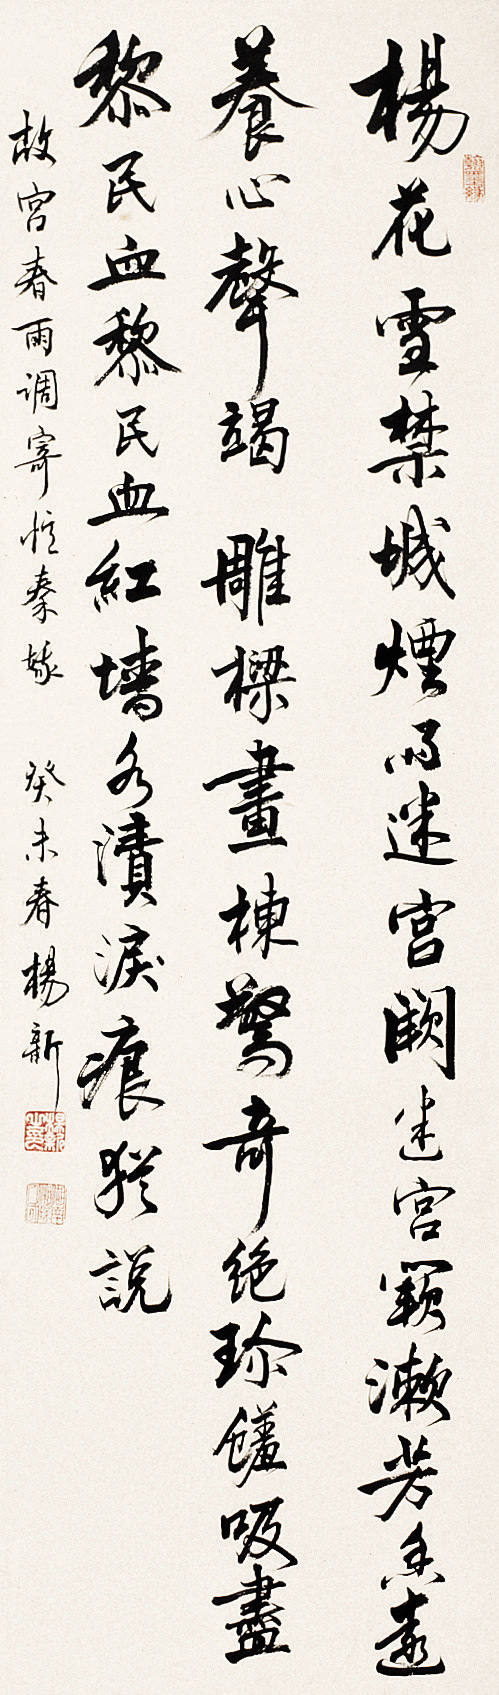 楊花雪禁城煙雨迷宮闕迷宮闕漱芳香遠
養心聲竭 雕樑畫棟驚奇絕珍饈吸盡
黎民血黎民血紅墻水漬淚痕猶說
故宮春雨调寄忆秦娥 癸未春楊新